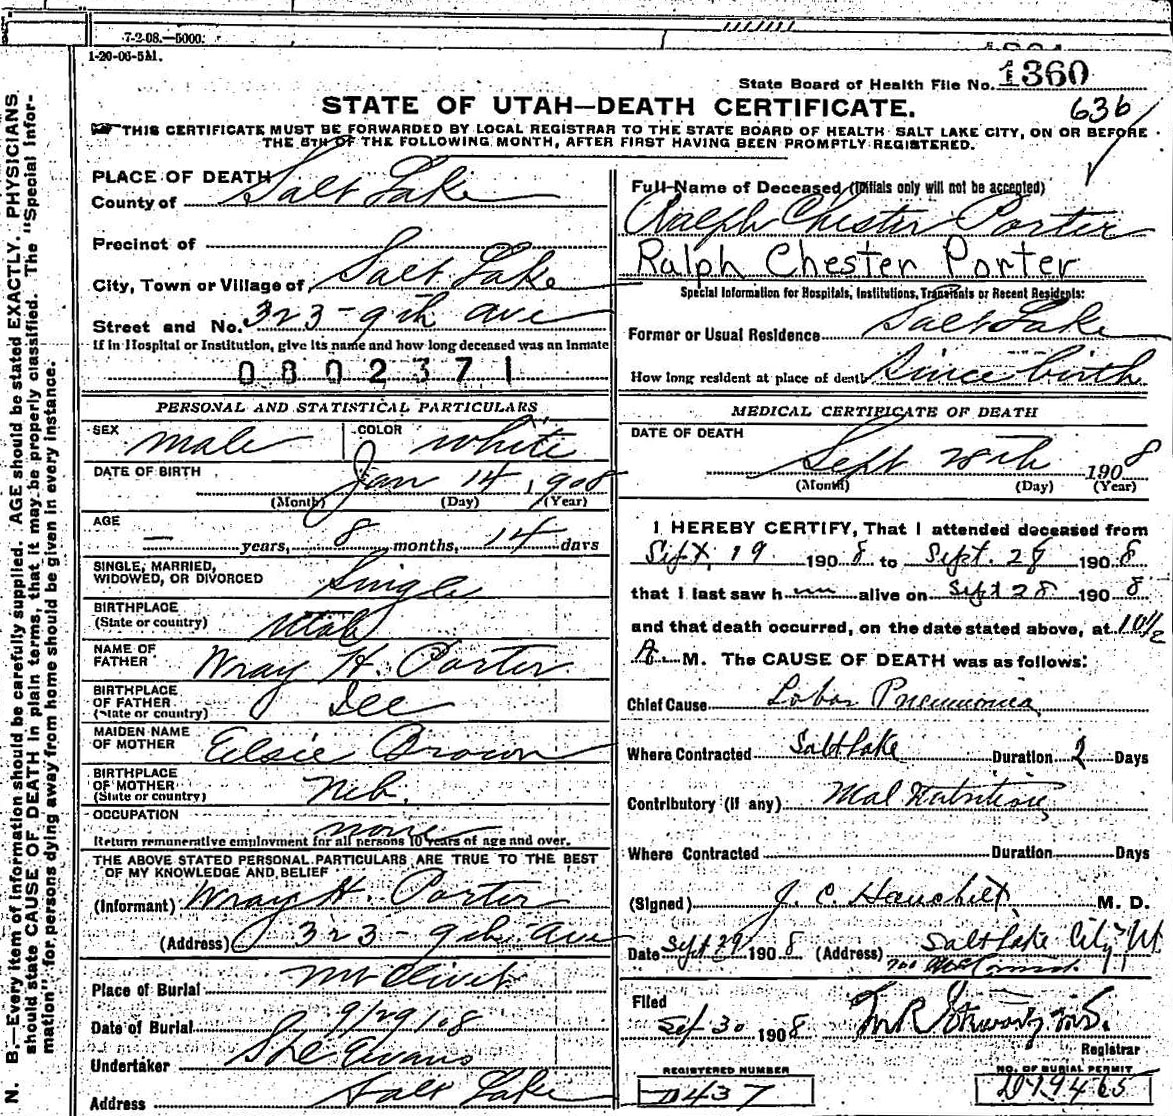 7-2-08.—5000.
1-20-06-5M.
State Board of Health File No. 1360
636
STATE OF UTAH—DEATH CERTIFICATE.
THIS CERTIFICATE MUST BE FORWARDED BY LOCAL REGISTRAR TO THE STATE BOARD OF HEALTH SALT LAKE CITY, ON OR BEFORE
THE 5TH OF THE FOLLOWING MONTH, AFTER FIRST HAVING BEEN PROMPTLY REGISTERED.
PLACE OF DEATH
County of Salt Lake
Precinct of
City, Town or Village of Salt Lake
Street and No. 323 - 9th Ave
If in Hospital or Institution, give its name and how long deceased was an Inmate
0802371
PERSONAL AND STATISTICAL PARTICULARS
SEX male COLOR white
DATE OF BIRTH Jan 14, 1908
(Month) (Day) (Year)
AGE — years, 8 months, 14 days
SINGLE, MARRIED,
WIDOWED, OR DIVORCED Single
BIRTHPLACE
(State or country) Utah
NAME OF
FATHER Wray H. Porter
BIRTHPLACE
OF FATHER
(State or country)
MAIDEN NAME
OF MOTHER Elsie Brown
BIRTHPLACE
OF MOTHER
(State or country) Neb.
OCCUPATION none
Return remunerative employment for all persons 10 years of age and over.
THE ABOVE STATED PERSONAL PARTICULARS ARE TRUE TO THE BEST
OF MY KNOWLEDGE AND BELIEF
(Informant) Wray H. Porter
(Address) 323 - 9th Ave
Place of Burial Mt Olivet
Date of Burial 9/29/08
Undertaker Evans
Address Salt Lake
Full Name of Deceased (Initials only will not be accepted)
Ralph Chester Porter
Ralph Chester Porter
Special Information for Hospitals, Institutions, Transients or Recent Residents:
Former or Usual Residence Salt Lake
How long resident at place of death Since birth
MEDICAL CERTIFICATE OF DEATH
DATE OF DEATH
Sept 28th 1908
(Month) (Day) (Year)
I HEREBY CERTIFY, That I attended deceased from
Sept, 19 1908 to Sept. 28 1908
that I last saw him alive on Sept 28 1908
and that death occurred, on the date stated above, at 10 1/2
A. M. The CAUSE OF DEATH was as follows:
Chief Cause Lobar Pneumonia
Where Contracted Salt Lake Duration 2 Days
Contributory (if any) Mal Nutrition
Where Contracted Duration Days
(Signed) J. C. M. D.
Date Sept 29 1908 (Address) Salt Lake City Ut
Filed
Sep 30 1908
Registrar
REGISTERED NUMBER
D437
NO. OF BURIAL PERMIT
D79465
N. B.—Every item of information should be carefully supplied. AGE should be stated EXACTLY. PHYSICIANS
should state CAUSE OF DEATH in plain terms, that it may be properly classified. The "Special Infor-
mation" for persons dying away from home should be given in every instance.